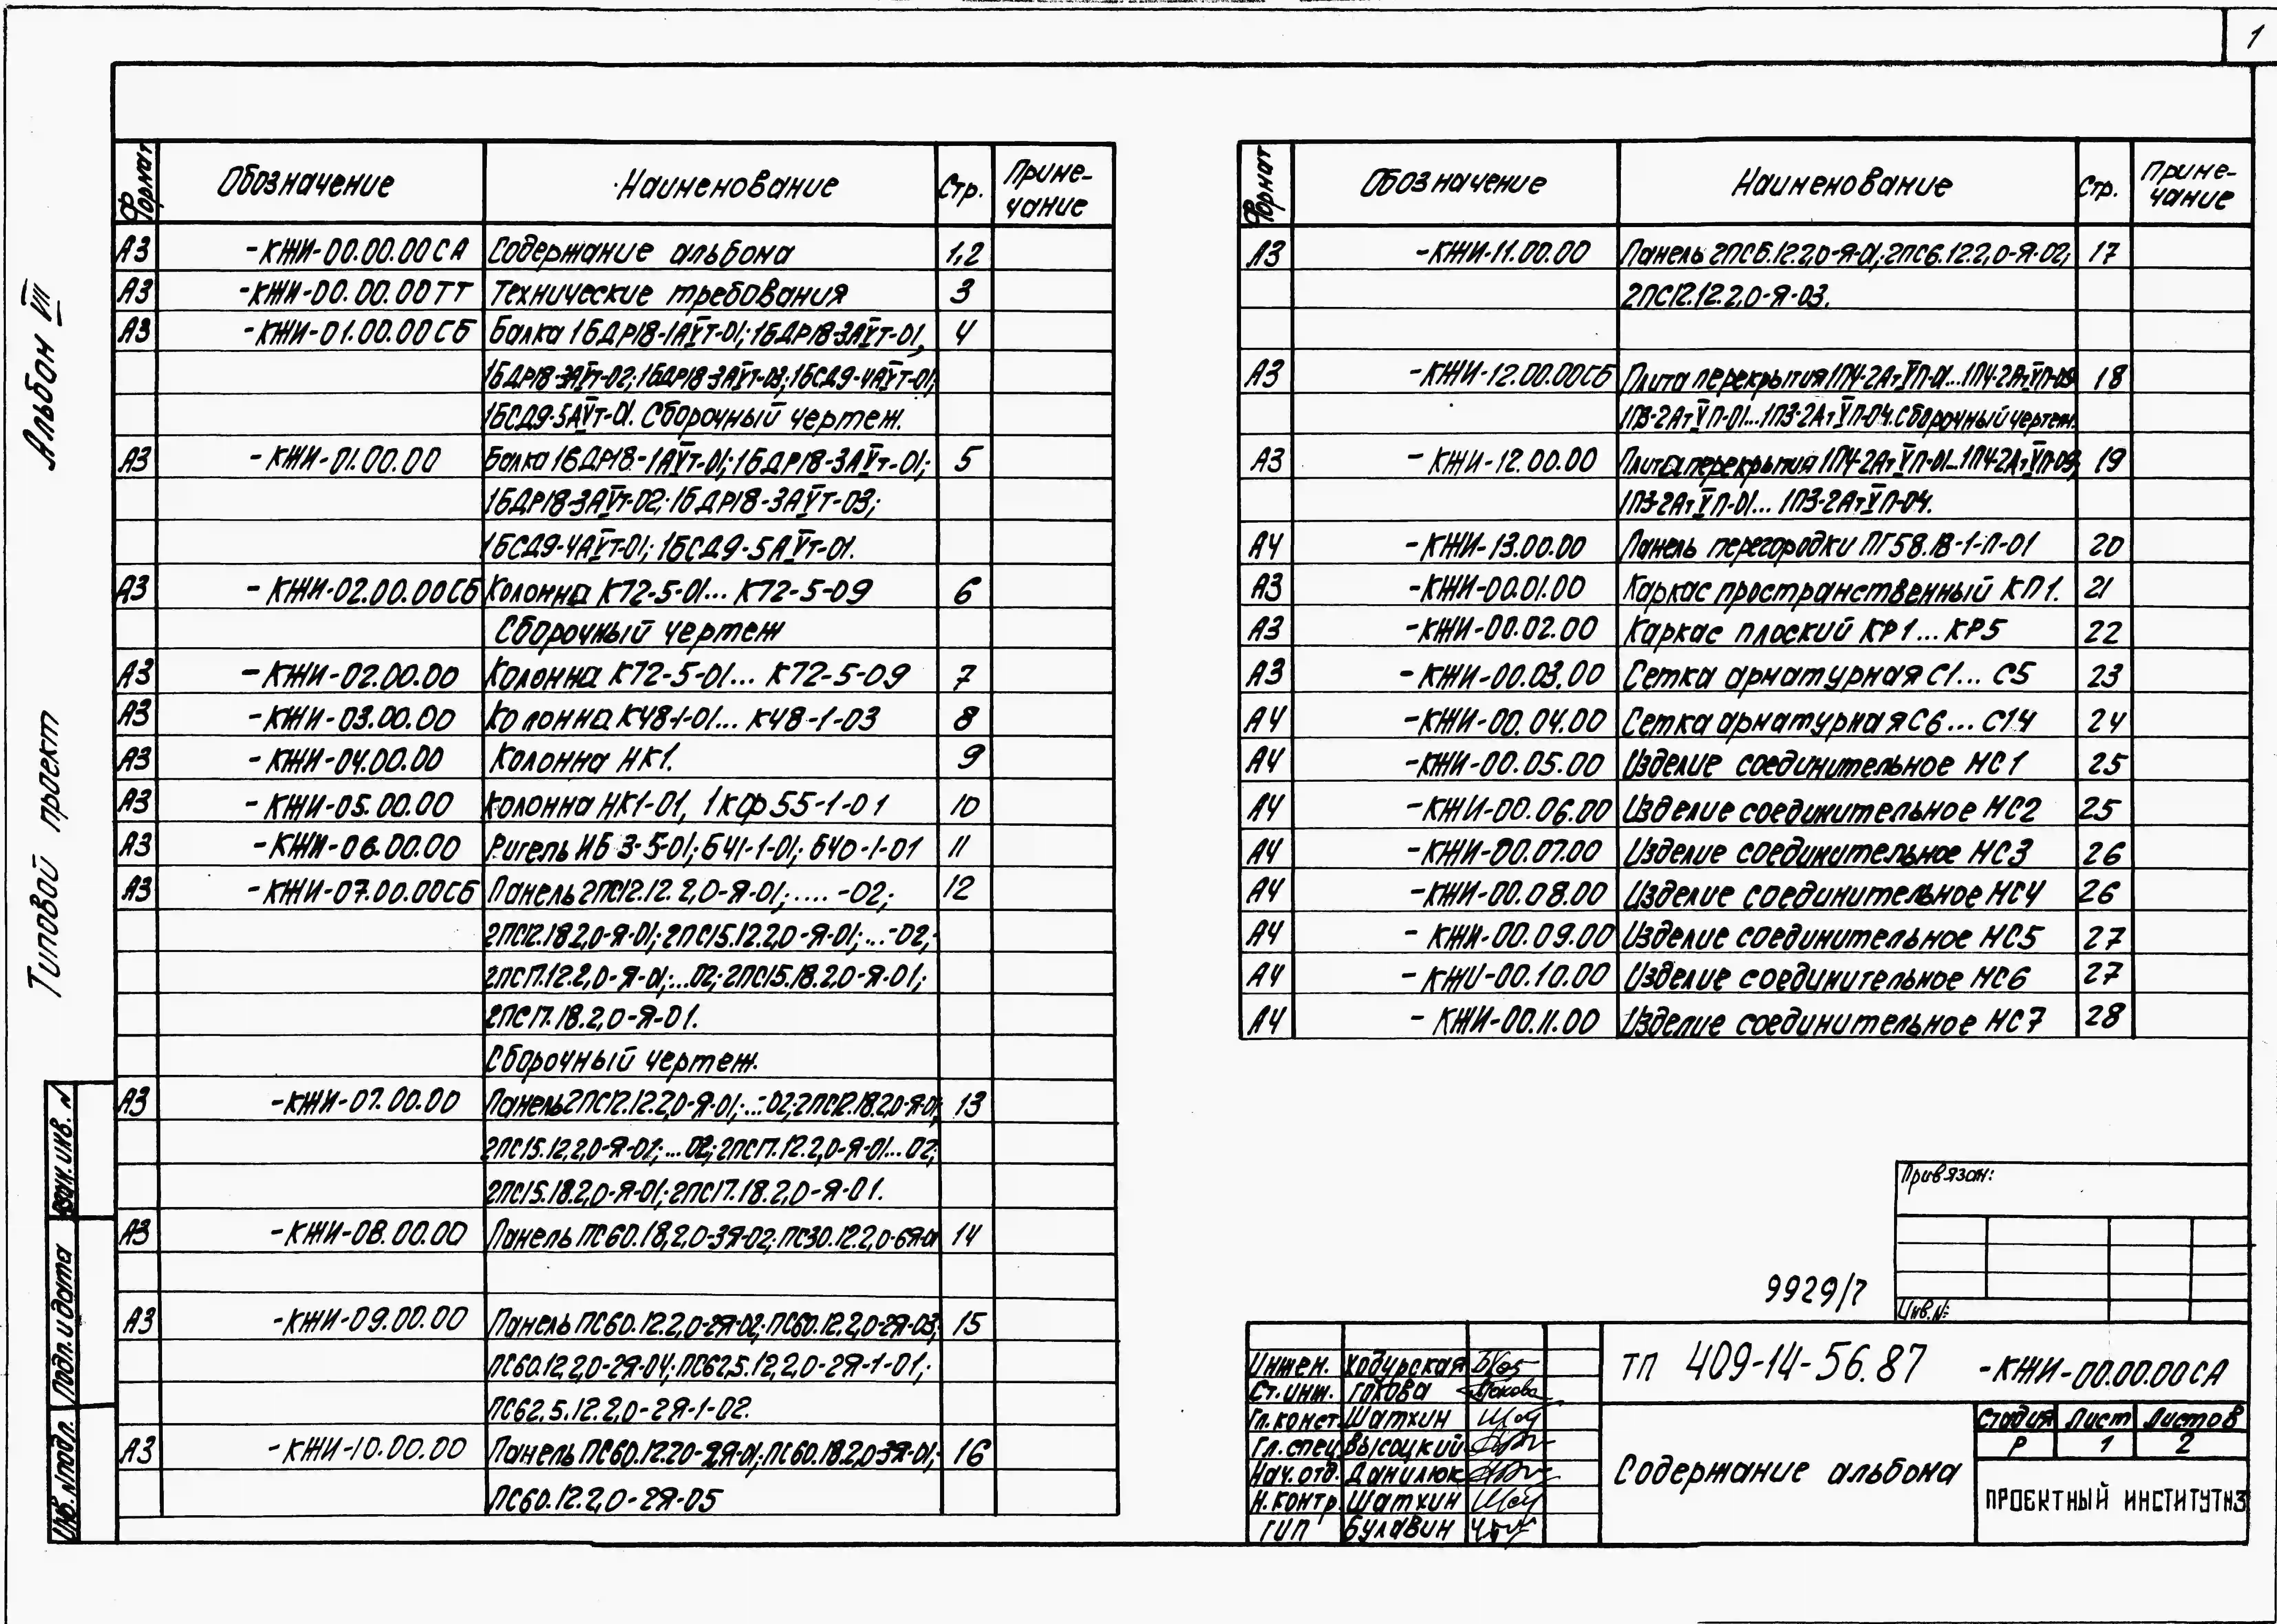 1
Альбом VII
Типовой проект
Формат Обозначение Наименование Стр. Приме-
чание
А3 -КЖИ-00.00.00СА Содержание альбома 1,2
А3 -КЖИ-00.00.00ТТ Технические требования 3
А3 -КЖИ-01.00.00СБ Балка 1БДР18-1АVт-01; 1БДР18-3АVт-01, 4
1БДР18-3АVт-02; 1БДР18-3АVт-03; 1БСД9-4АVт-01;
1БСД9-5АVт-01. Сборочный чертеж.
А3 -КЖИ-01.00.00 Балка 1БДР18-1АVт-01; 1БДР18-3АVт-01; 5
1БДР18-3АVт-02; 1БДР18-3АVт-03;
1БСД9-4АVт-01; 1БСД9-5АVт-01.
А3 -КЖИ-02.00.00СБ Колонна К72-5-01... К72-5-09 6
Сборочный чертеж
А3 -КЖИ-02.00.00 Колонна К72-5-01... К72-5-09 7
А3 -КЖИ-03.00.00 Колонна К48-1-01... К48-1-03 8
А3 -КЖИ-04.00.00 Колонна НК1. 9
А3 -КЖИ-05.00.00 Колонна НК1-01, 1КФ55-1-01 10
А3 -КЖИ-06.00.00 Ригель ИБ 3-5-01; Б41-1-01; Б40-1-01 11
А3 -КЖИ-07.00.00СБ Панель 2ПС12.12.2,0-Я-01; .... -02; 12
2ПС12.18.2,0-Я-01; 2ПС15.12.2,0-Я-01; ...-02;
2ПС17.12.2,0-Я-01; ...02; 2ПС15.18.2,0-Я-01;
2ПС17.18.2,0-Я-01.
Сборочный чертеж.
А3 -КЖИ-07.00.00 Панель 2ПС12.12.2,0-Я-01; ...-02; 2ПС12.18.2,0-Я-01; 13
2ПС15.12.2,0-Я-01; ...02; 2ПС17.12.2,0-Я-01...02;
2ПС15.18.2,0-Я-01; 2ПС17.18.2,0-Я-01.
А3 -КЖИ-08.00.00 Панель ПС60.18.2,0-3Я-02; ПС30.12.2,0-6Я-01 14
А3 -КЖИ-09.00.00 Панель ПС60.12.2,0-2Я-02; ПС60.12.2,0-2Я-03; 15
ПС60.12.2,0-2Я-04; ПС62,5.12.2,0-2Я-1-01;
ПС62,5.12.2,0-2Я-1-02.
А3 -КЖИ-10.00.00 Панель ПС60.12.2,0-2Я-01; ПС60.18.2,0-3Я-01; 16
ПС60.12.2,0-2Я-05
Формат Обозначение Наименование Стр. Приме-
чание
А3 -КЖИ-11.00.00 Панель 2ПС6.12.2,0-Я-01; 2ПС6.12.2,0-Я-02; 17
2ПС12.12.2,0-Я-03.
А3 -КЖИ-12.00.00СБ Плита перекрытия 1П4-2АтVП-01...1П4-2АтVП-09 18
1П3-2АтVП-01...1П3-2АтVП-04. Сборочный чертеж.
А3 -КЖИ-12.00.00 Плита перекрытия 1П4-2АтVП-01...1П4-2АтVП-09; 19
1П3-2АтVП-01... 1П3-2АтVП-04.
А4 -КЖИ-13.00.00 Панель перегородки ПГ58.18-1-П-01 20
А3 -КЖИ-00.01.00 Каркас пространственный КП1. 21
А3 -КЖИ-00.02.00 Каркас плоский КР1...КР5 22
А3 -КЖИ-00.03.00 Сетка арматурная С1... С5 23
А4 -КЖИ-00.04.00 Сетка арматурная С6... С14 24
А4 -КЖИ-00.05.00 Изделие соединительное МС1 25
А4 -КЖИ-00.06.00 Изделие соединительное МС2 25
А4 -КЖИ-00.07.00 Изделие соединительное МС3 26
А4 -КЖИ-00.08.00 Изделие соединительное МС4 26
А4 -КЖИ-00.09.00 Изделие соединительное МС5 27
А4 -КЖИ-00.10.00 Изделие соединительное МС6 27
А4 -КЖИ-00.11.00 Изделие соединительное МС7 28
Взам. инв. N
Подп. и дата
Инв. N подл.
Привязан:
Инв. N:
9929/7
Инжен. Ходурская
Ст. инж. Гокова
Гл. конст. Шатхин
Гл. спец. Высоцкий
Нач. отд. Данилюк
Н. контр. Шатхин
ГИП Булавин
ТП 409-14-56.87 -КЖИ-00.00.00СА
Содержание альбома
Стадия Лист Листов
Р 1 2
ПРОЕКТНЫЙ ИНСТИТУТ N3